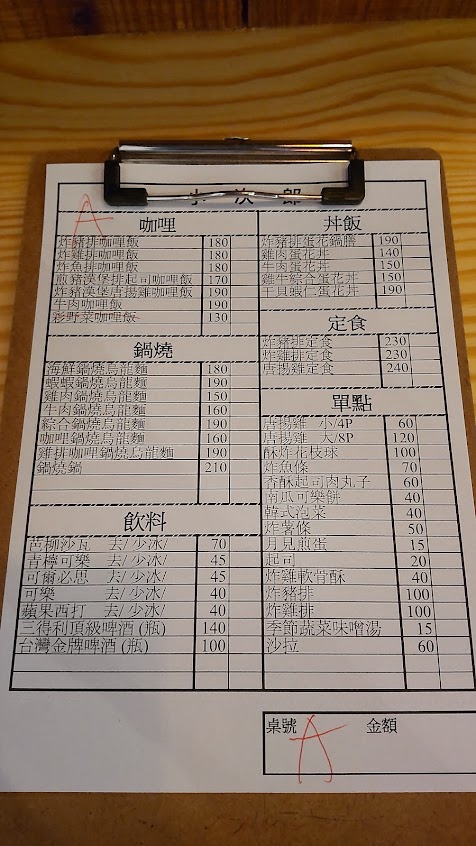 次郎
A
咖哩
炸豬排咖哩飯 180
炸雞排咖哩飯 180
炸魚排咖哩飯 180
煎豬漢堡排起司咖哩飯 170
炸豬漢堡唐揚雞咖哩飯 190
牛肉咖哩飯 190
彩野菜咖哩飯 130
鍋燒
海鮮鍋燒烏龍麵 180
蝦蝦鍋燒烏龍麵 190
雞肉鍋燒烏龍麵 150
牛肉鍋燒烏龍麵 160
綜合鍋燒烏龍麵 190
咖哩鍋燒烏龍麵 160
雞排咖哩鍋燒烏龍麵 190
鍋燒鍋 210
飲料
芭柳沙瓦 去/少冰/ 70
青檸可樂 去/少冰/ 45
可爾必思 去/少冰/ 45
可樂 去/少冰/ 40
蘋果西打 去/少冰/ 40
三得利頂級啤酒(瓶) 140
台灣金牌啤酒(瓶) 100
丼飯
炸豬排蛋花鍋膳 190
雞肉蛋花丼 140
牛肉蛋花丼 150
雞牛綜合蛋花丼 150
干貝蝦仁蛋花丼 190
定食
炸豬排定食 230
炸雞排定食 230
唐揚雞定食 240
單點
唐揚雞 小/4P 60
唐揚雞 大/8P 120
酥炸花枝球 100
炸魚條 70
香酥起司肉丸子 60
南瓜可樂餅 40
韓式泡菜 40
炸薯條 50
月見煎蛋 15
起司 20
炸雞軟骨酥 40
炸豬排 100
炸雞排 100
季節蔬菜味噌湯 15
沙拉 60
桌號 A 金額